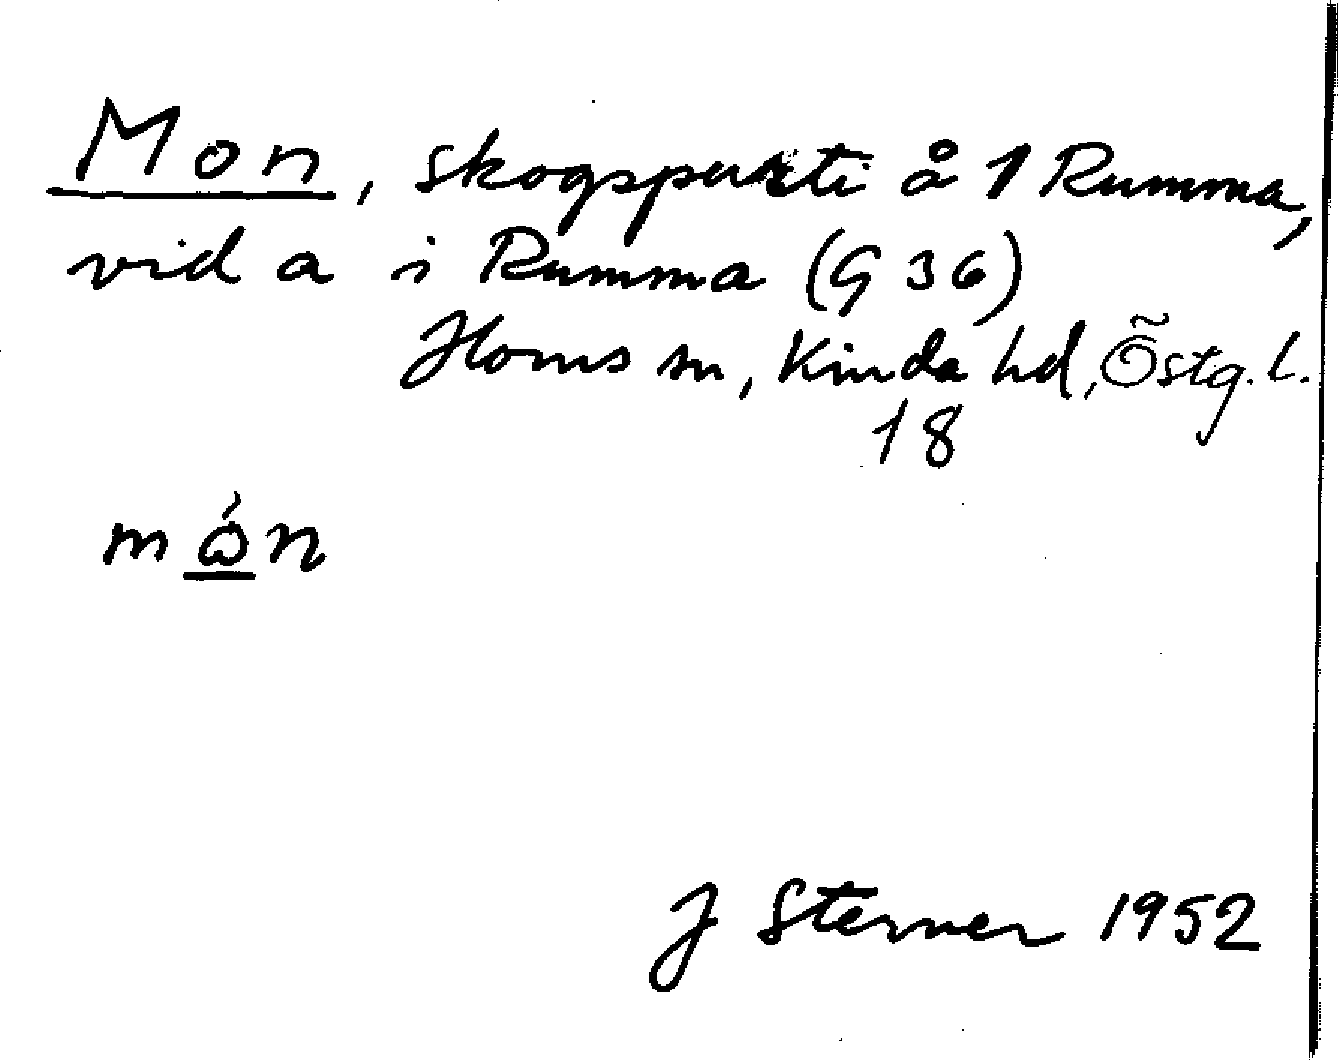 Mon, skogsparti å 1 Rumma,
vid a i Rumma (G 36)
Horns sn, Kinda hd, Östg. l.
18
mǿn
J Sterner 1952